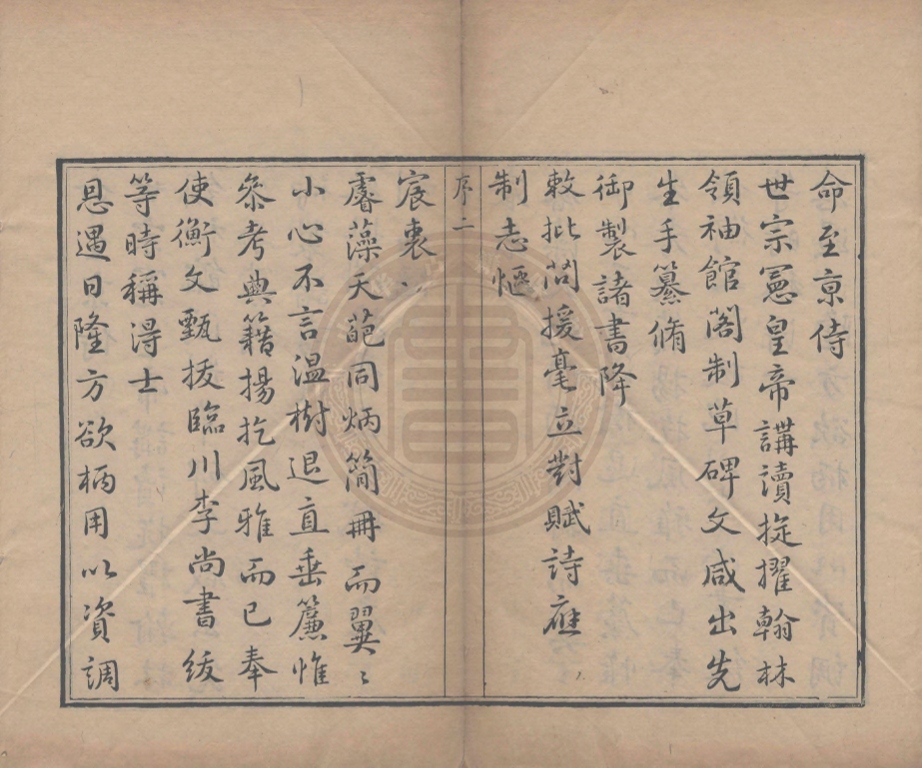 命至京侍
世宗憲皇帝講讀㝎擢翰林
領袖館閣制草碑文咸出先
生手纂脩
御製諸書降
敕批荅援毫立對賦詩應
制志愜
序 二
宸衷
睿藻天葩同炳簡冊而翼〻
小心不言温樹退直垂簾惟
叅考典籍揚扢風雅而已奉
使衡文甄拔臨川李尚書紱
等時稱得士
恩遇日隆方欲柄用以資調